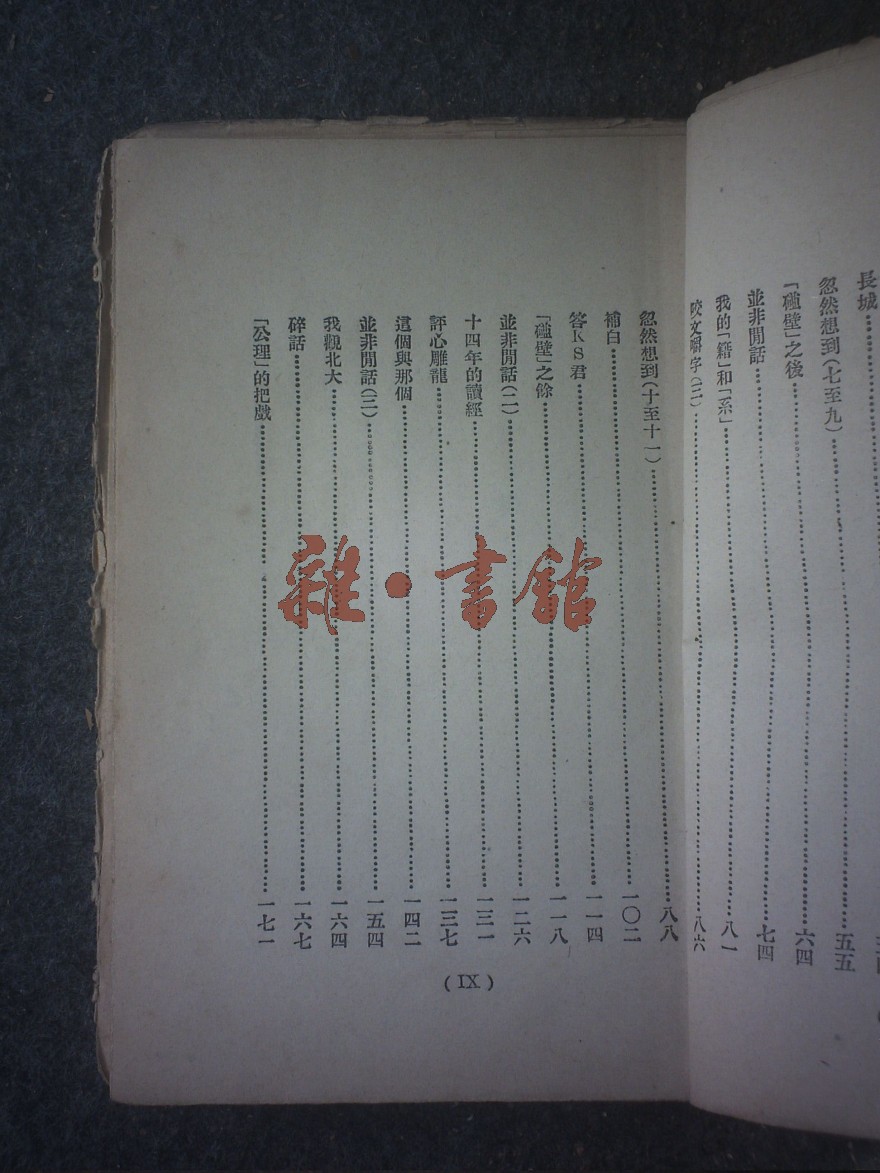 長城
忽然想到(七至九)……五五
「碰壁」之後……六四
並非閒話……七四
我的「籍」和「系」……八一
咬文嚼字(三)……八六
忽然想到(十至十一)……八八
補白……一〇二
答KS君……一一四
「碰壁」之餘……一一八
並非閒話(二)……一二六
十四年的讀經……一三一
評心雕龍……一三七
這個與那個……一四二
並非閒話(三)……一五四
我觀北大……一六四
碎話……一六七
「公理」的把戲……一七一
(IX)
雜·書館